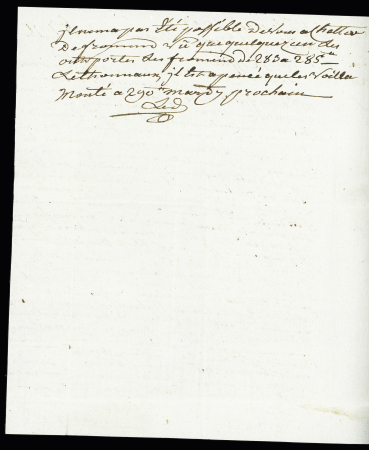 il ne ma pas Eté possible de vous achetter
De froment vu que quelques un des
onts portes des froment de 283 a 285
Le tonnaux, il Est a pensé que les voilla
Monté a 290 mardy prochain